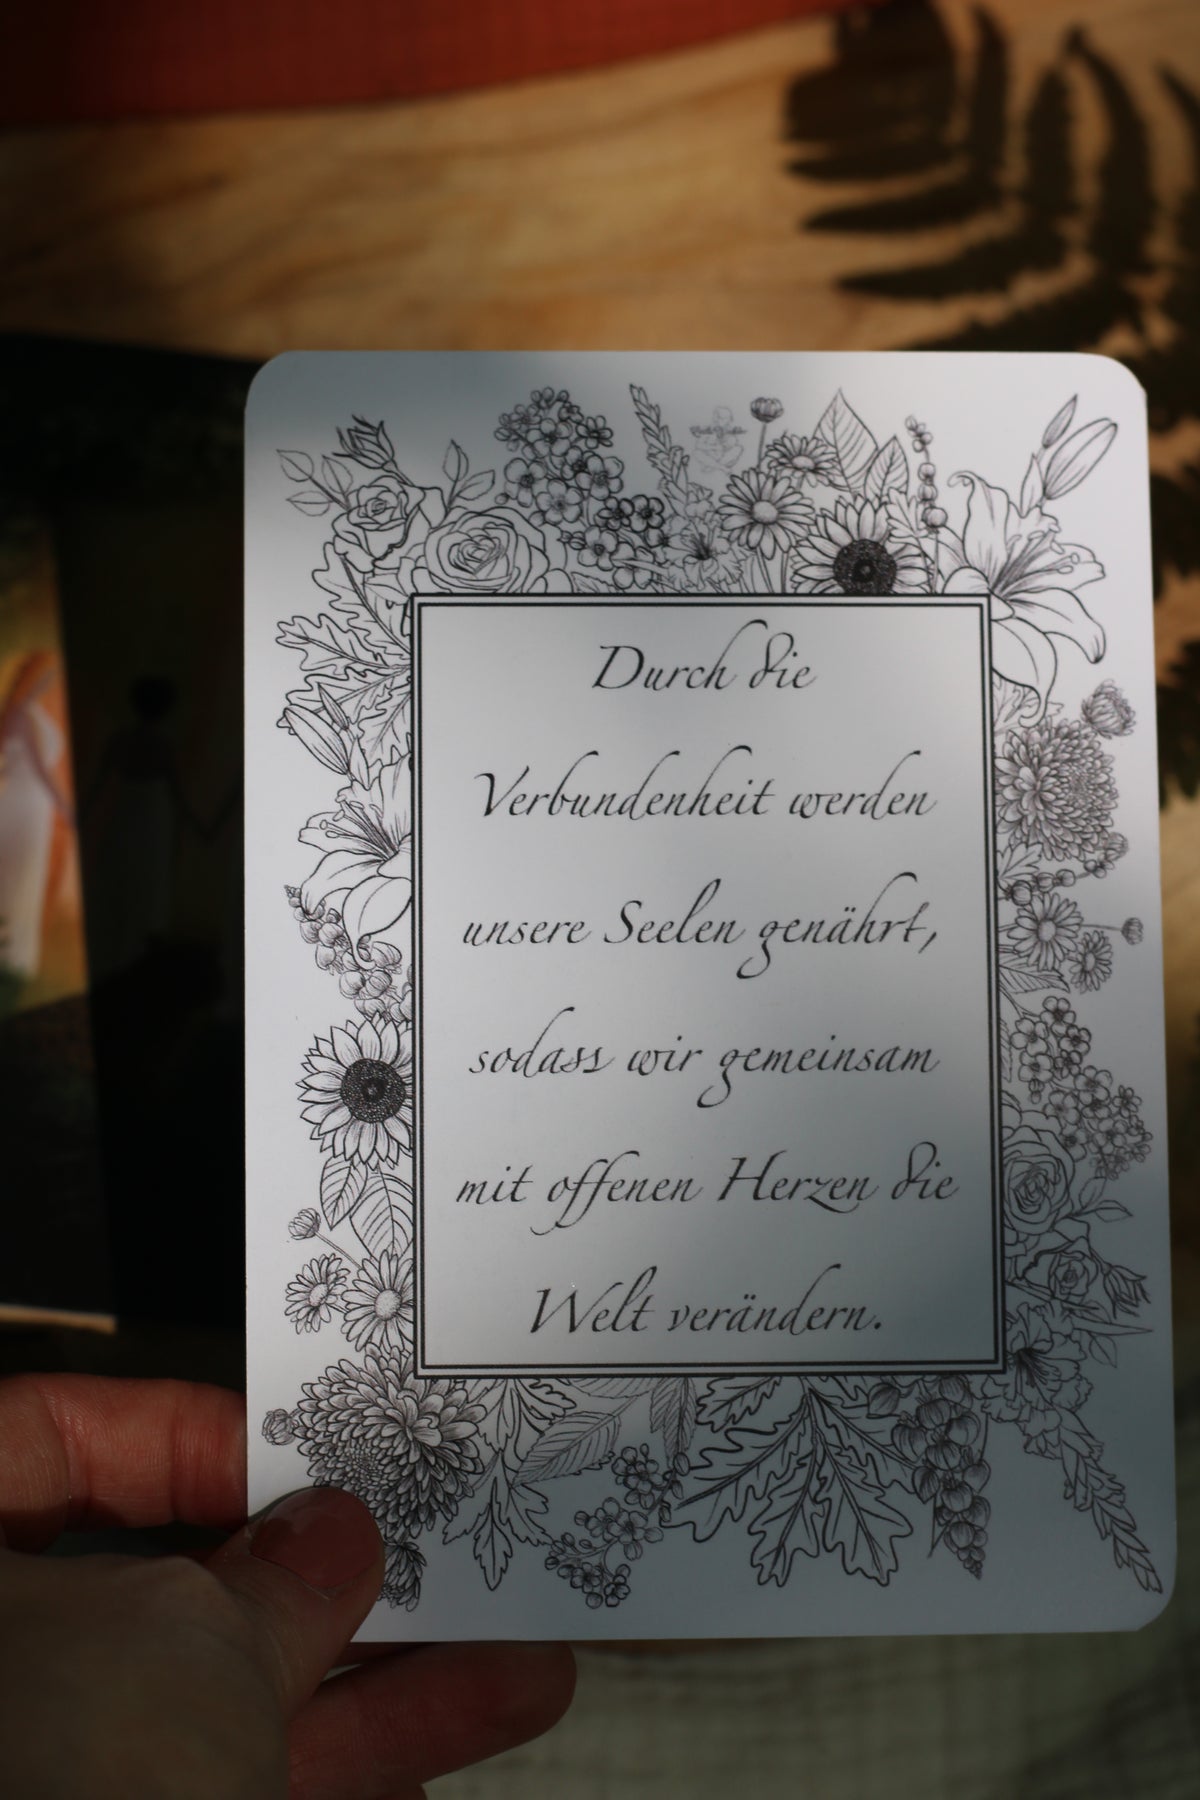 Durch die
Verbundenheit werden
unsere Seelen genährt,
sodass wir gemeinsam
mit offenen Herzen die
Welt verändern.